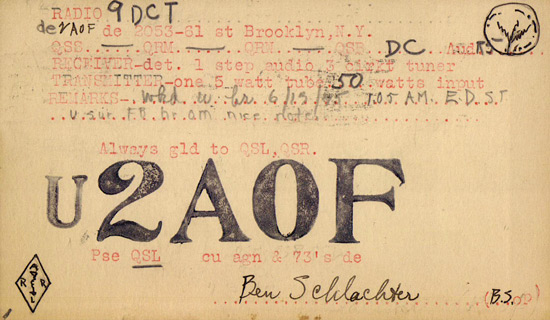 RADIO 9DCT
de 2AOF de 2053-61 st Brooklyn, N.Y.
QSS..... QRM..... QRN..... QSB. DC. Aud
RECEIVER-det. 1 step audio 3 tuner
TRANSMITTER-one 5 watt tube 50 watts input
REMARKS-. wkd u hr 6/13/ 1.05 A.M. E.D.S.T
u sur hr. am
Always gld to QSL,QSR.
U2AOF
Pse QSL cu agn & 73's de
Ben Schlachter (B.S. OP)
A R R L